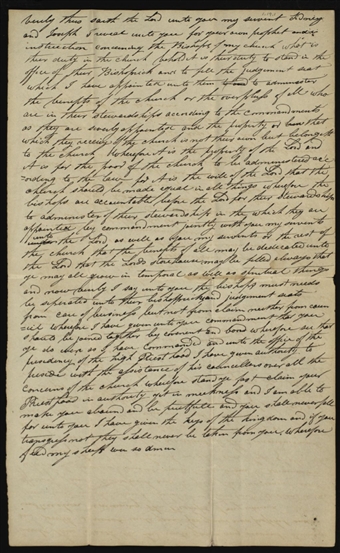 verily thus saith the Lord unto you my servent Sidney
and Joseph I reveal unto you for your own prophet and
instruction concerning the Bishops of my church what is
their duty in the church behold it is their duty to stand in the
office of their Bishoprick and to fill the judgement seat
which I have appointed unto them to administer
the benefits of the church or the overpluss of all who
are in their stewardships according to the commandments
as they are severly appointed and the property or that
which they receive of the church is not their own but belongeth
to the church Wherefore it is the property of the Lord and
it is for the poor of the church to be administered acc
ording to the law for it is the will of the Lord that the
church should be made equal in all things wherefore the
bishops are accountable before the Lord for their stewardships
to administer of their stewardship in the which they are
appointed by commandment jointly with you my servents
unto the Lord as well as you my servents or the rest of
the church that the benefits of all may be dedicated unto
the Lord that the Lords storehouse may be filled always that
ye may all grow in temporal as well as spiritual things
and now verily I say unto you the bishops must needs
be seperated unto their bishoppricks and judgment seats
from care of business but not from claim neither from coun
cil wherefore I have given unto you commandment that you
should be joined together by covenant and bond wherefore see that
ye do even as I have commanded and unto the office of the
presidency of the high Priesthood I have given authority to
preside with the assistance of his councellors over all the
concerns of the church wherefore stand ye fast claim your
Priesthood in authority yet in meekness and I am able to
make you abound and be fruitfull and you shall never fall
for unto you I have given the keys of the kingdom and if you
transgress not they shall never be taken from you. Wherefore
feed my sheep even so amen